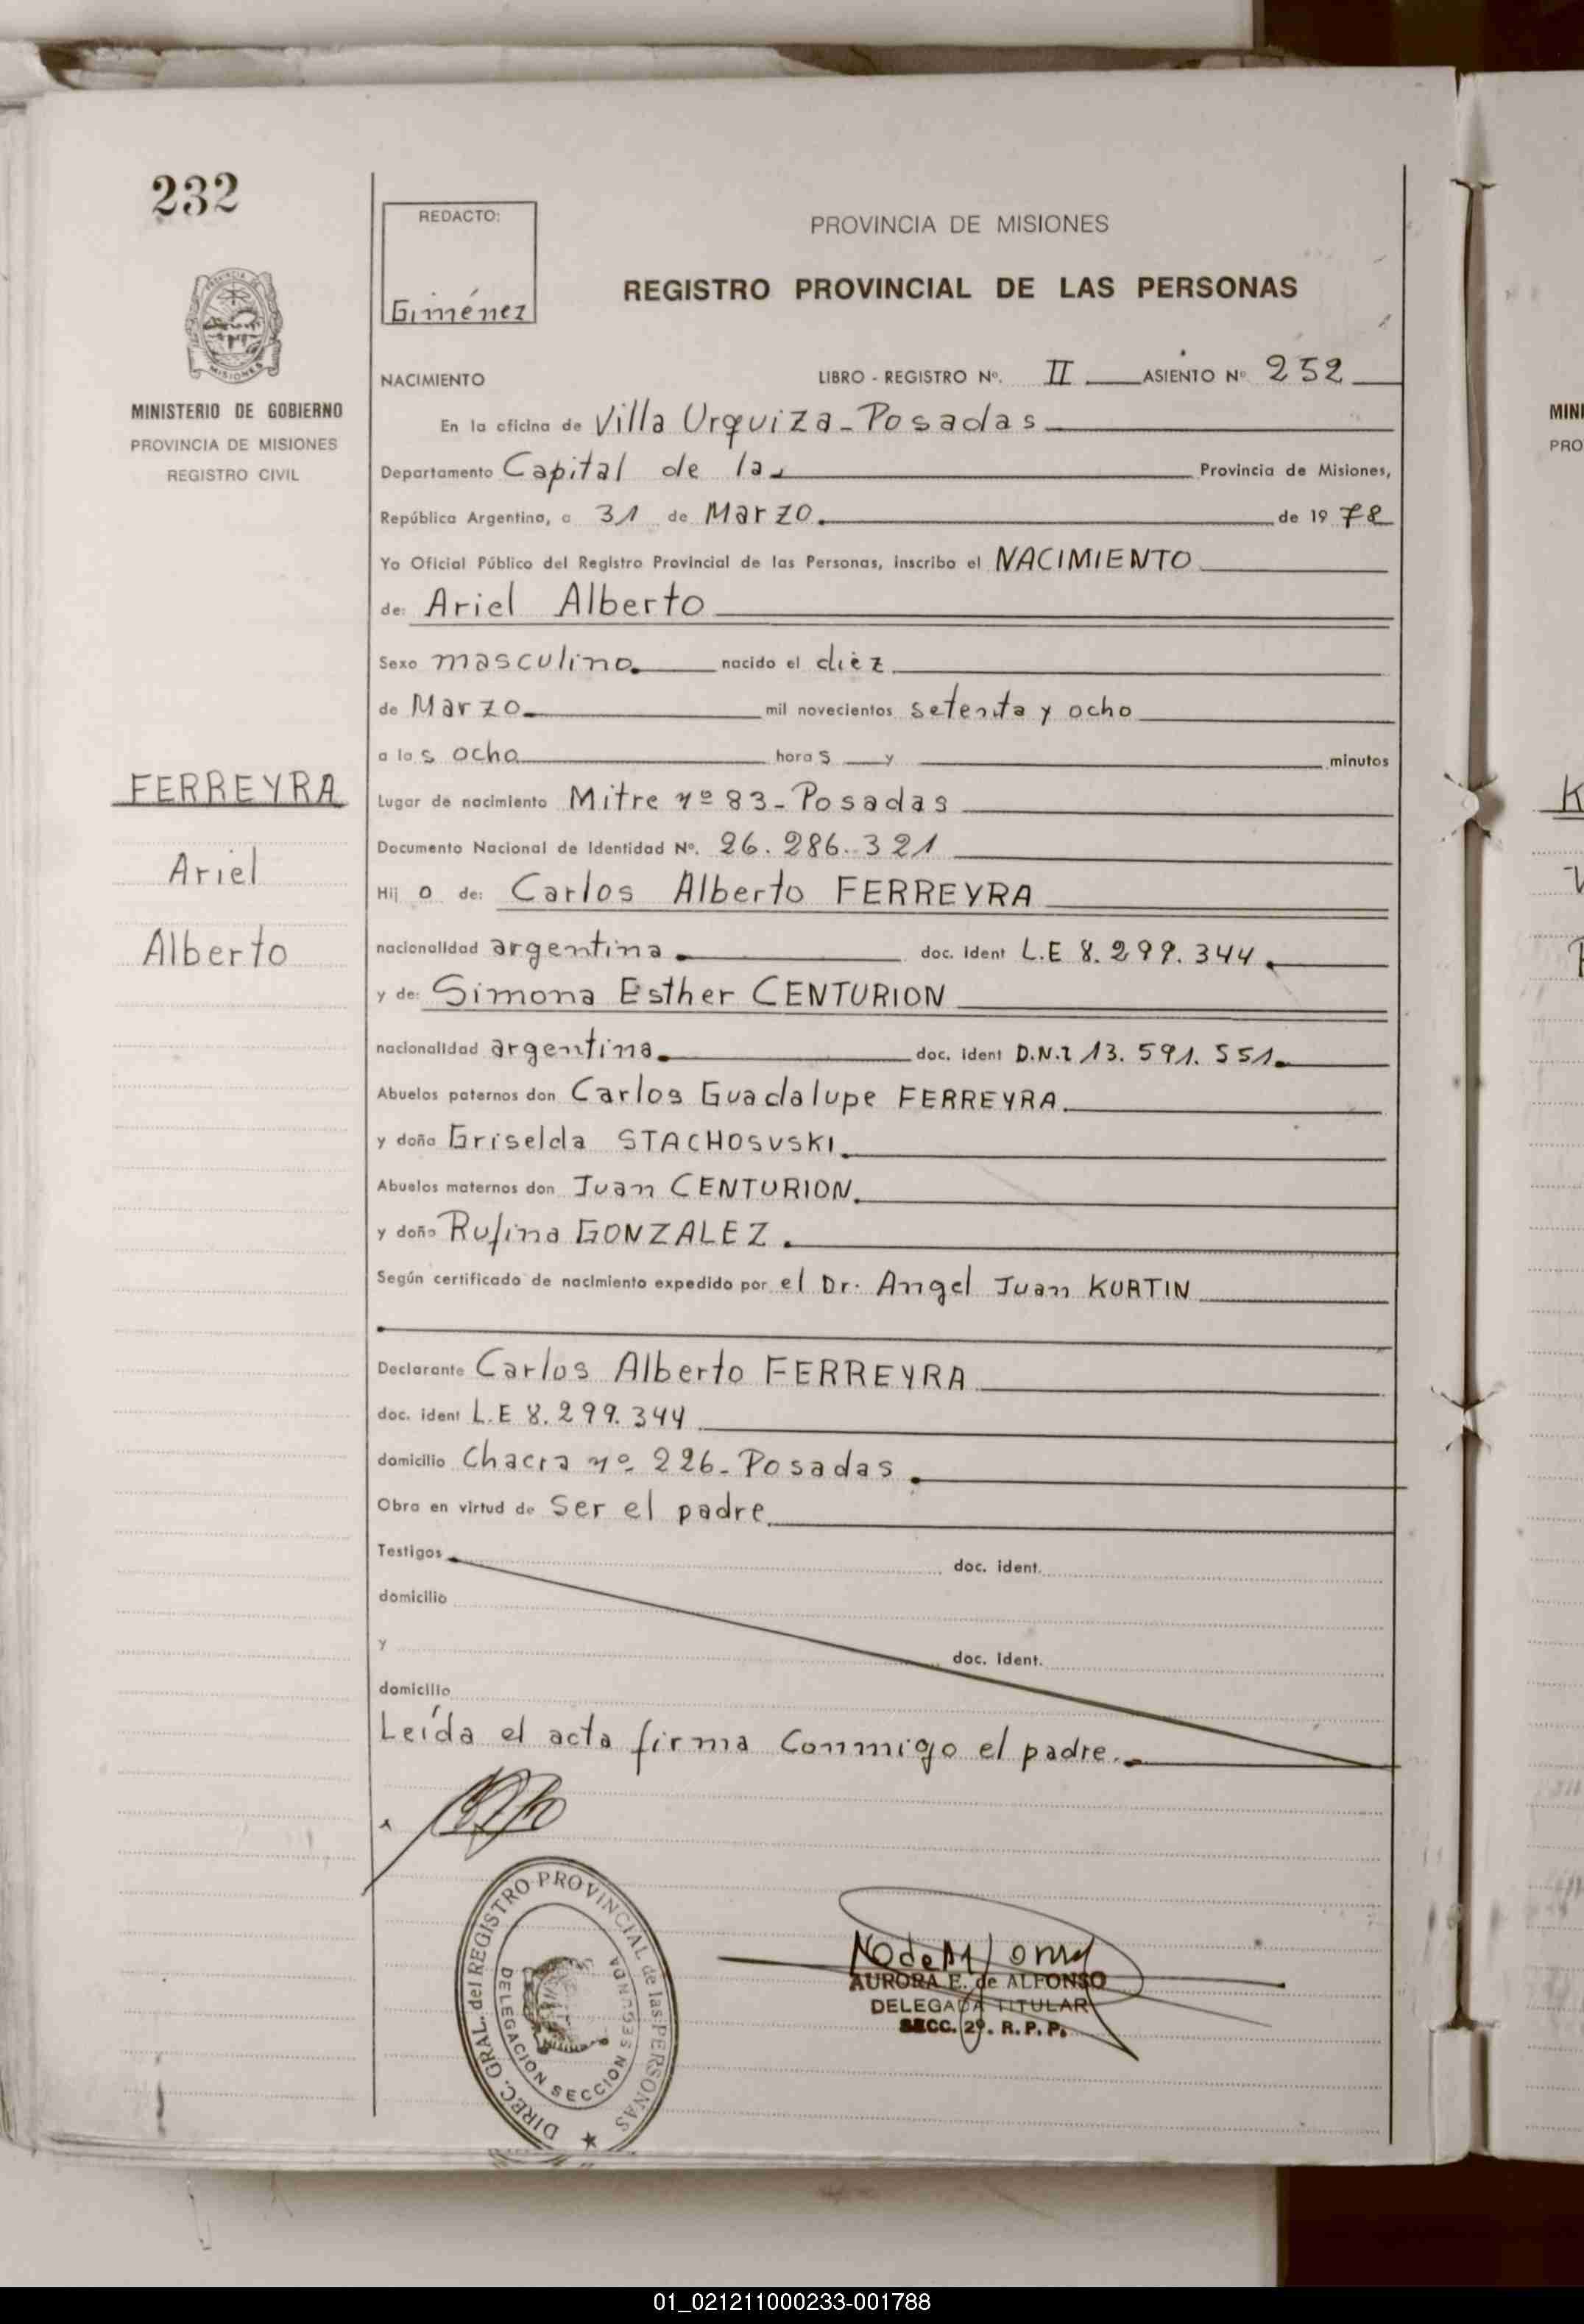 232
REDACTO:
Giménez
PROVINCIA DE MISIONES
REGISTRO PROVINCIAL DE LAS PERSONAS
MINISTERIO DE GOBIERNO
PROVINCIA DE MISIONES
REGISTRO CIVIL
FERREYRA
Ariel
Alberto
NACIMIENTO LIBRO - REGISTRO Nº. II ASIENTO Nº 252
En la oficina de Villa Urquiza - Posadas
Departamento Capital de la Provincia de Misiones,
República Argentina, a 31 de Marzo. de 19 78
Yo Oficial Público del Registro Provincial de las Personas, inscribo el NACIMIENTO
de: Ariel Alberto
Sexo masculino. nacido el diez
de Marzo mil novecientos setenta y ocho
a las ocho horas y minutos
Lugar de nacimiento Mitre nº 83 - Posadas
Documento Nacional de Identidad Nº. 26.286.321
Hij o de: Carlos Alberto FERREYRA
nacionalidad argentina. doc. ident L.E 8.299.344.
y de: Simona Esther CENTURION
nacionalidad argentina. doc. ident D.N.I 13.591.551.
Abuelos paternos don Carlos Guadalupe FERREYRA.
y doña Griselda STACHOSVSKI.
Abuelos maternos don Juan CENTURION.
y doña Rufina GONZALEZ.
Según certificado de nacimiento expedido por el Dr. Angel Juan KURTIN
Declarante Carlos Alberto FERREYRA
doc. ident L.E 8.299.344
domicilio Chacra nº 226 - Posadas.
Obra en virtud de Ser el padre
Testigos doc. ident.
domicilio
y doc. ident.
domicilio
Leída el acta firma Conmigo el padre.
DIREC. GRAL. del REGISTRO PROVINCIAL de las PERSONAS
DELEGACION SECCION SEGUNDA
AURORA E. de ALFONSO
DELEGADA TITULAR
SECC. 2º. R. P. P.
MINI
PRO
01_021211000233-001788